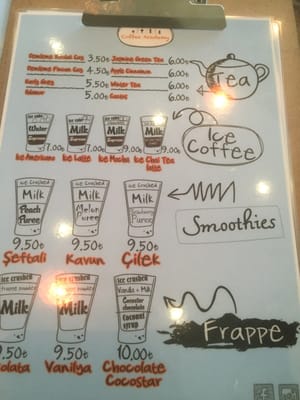 Coffee Academy
3.50₺ Jasmine Green Tea 6.00₺
4.50₺ Apple Cinnamon 6.00₺
5.00₺ Winter Tea 6.00₺
5.00₺ 6.00₺
Tea
Ice Coffee
Ice cubes Ice cubes Ice cubes Ice cubes
Water Milk Milk Milk
Espresso Espresso
7.00₺ 7.00₺ 9.00₺ 9.00₺
Ice Americano Ice Latte Ice Mocha Ice Chai Tea
latte
Ice Crushed Ice Crushed Ice Crushed
Milk Milk Milk
Peach Puree Melon Puree Strawberry Puree
Smoothies
9.50₺ 9.50₺ 9.50₺
Şeftali Kavun Çilek
ice crushed ice crushed ice crushed
Vanilla + Milk
Milk Milk
Coconut syrup
Frappe
9.50₺ 9.50₺ 10.00₺
olata Vanilya Chocolate
Cocostar